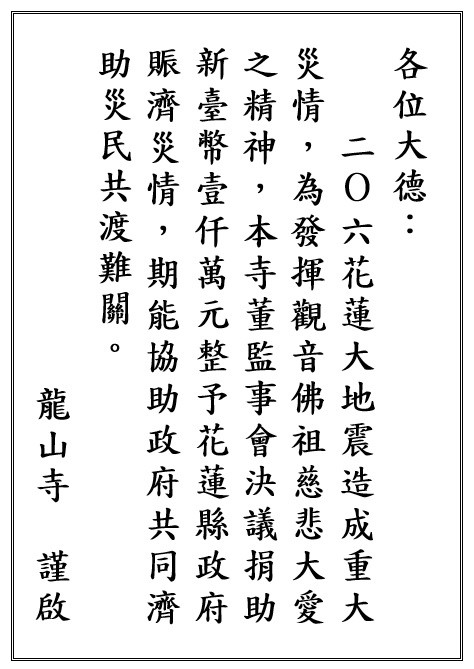 各位大德：
二〇六花蓮大地震造成重大
災情，為發揮觀音佛祖慈悲大愛
之精神，本寺董監事會決議捐助
新臺幣壹仟萬元整予花蓮縣政府
賑濟災情，期能協助政府共同濟
助災民共渡難關。
龍山寺　謹啟